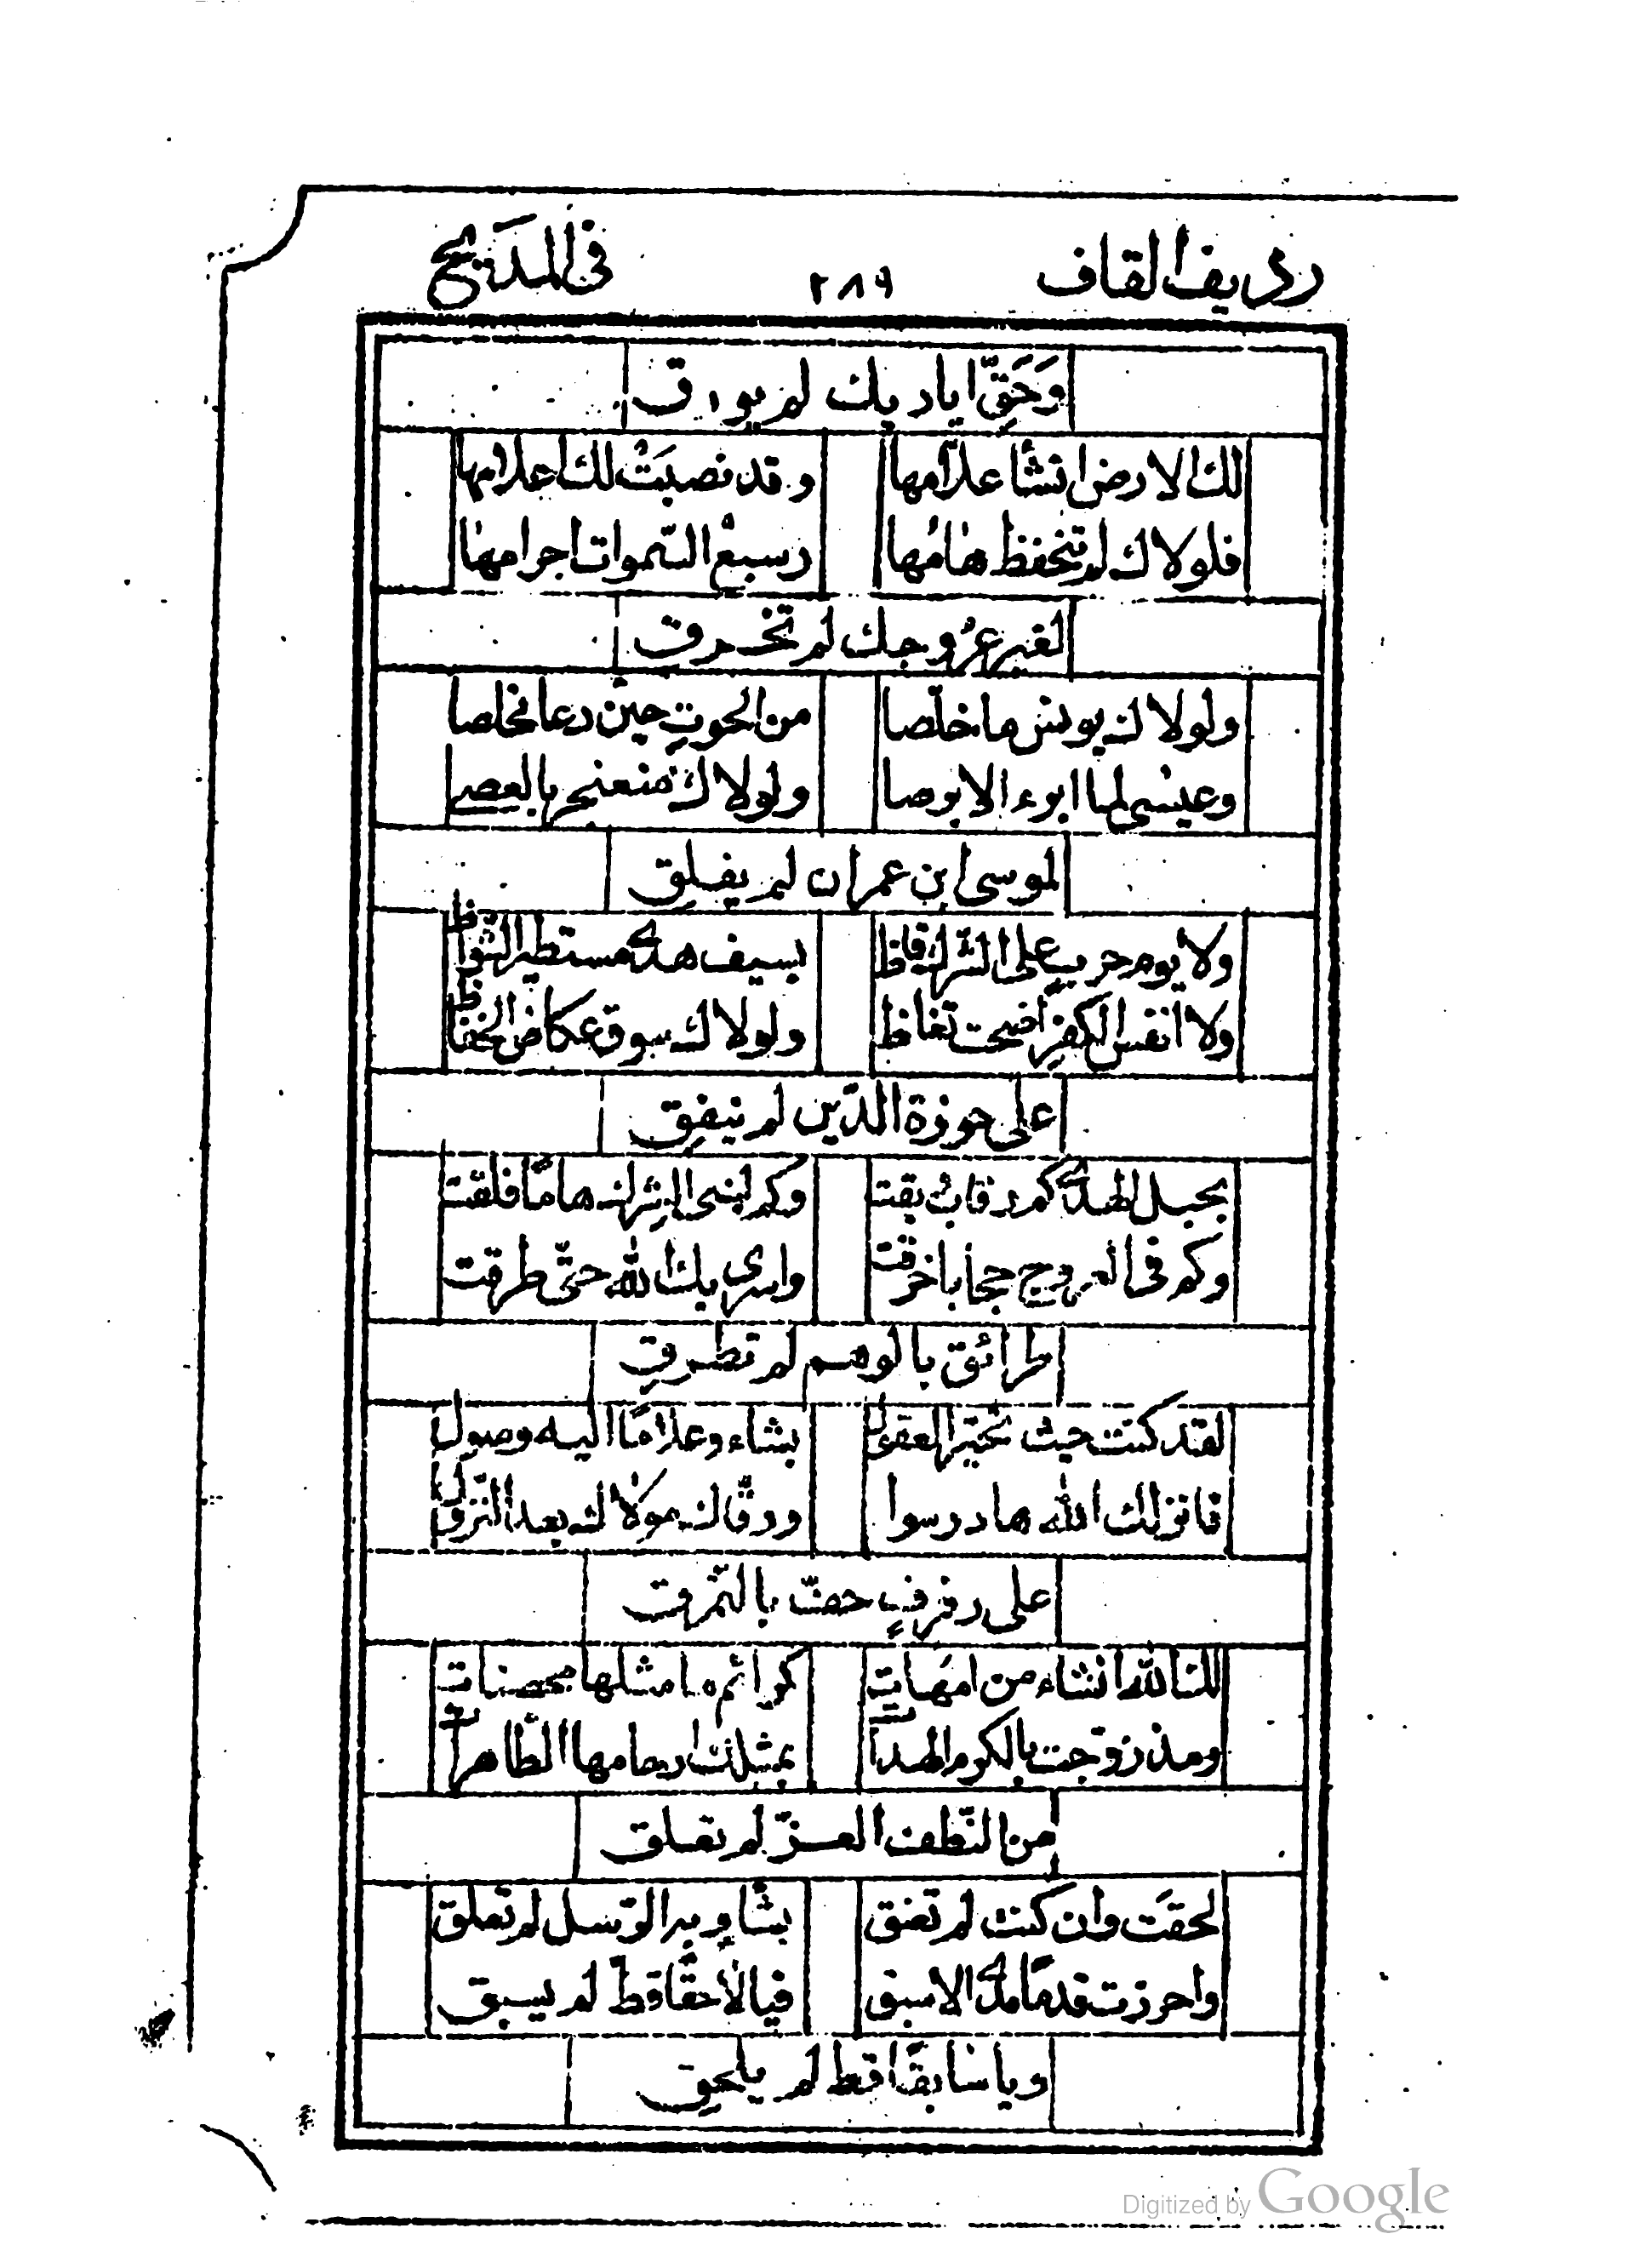 رديف القاف ٢٨٩ في المديح
وَحَقِّ اياديك لم يورق
لك الارض انشأ علّامها وقد نصبَتْ لك اعلامها
فلولاك لم تنخفظ هامُها وسبعُ السّموات اجرامها
لغير عُروجك لم تخرق
ولولاك يونس ما خلّصا من الحوتِ حين دعا مخلصا
وعيسى لما ابرء الابرصا ولولاك مثعنجر بالعصى
لموسى ابن عمران لم يفلق
ولا يوم حربٍ على الشرك قاظ بسيف هدىً مستطير الشواظ
ولا انفس الكفر اضحت تغاظ ولولاك سوق عكاض الحفاظ
على حوزة الدّين لم ينفق
بحبل الهدى كم رقاب ربقت وكم لبنى الشرك هامًا فلقت
وكم في العروج حجابا خرقت واسرى بك الله حتّى طرقت
طرائق بالوهم لم تطرق
لقد كنت حيث تحيّر العقول بشاء وعلامًا اليه وصول
فانزلك الله هاد رسوا ورقّاك مولاك بعد النزول
على رفرفٍ حفّت بالنمرق
لك الله انشاء من امهات كرائم ما مثلها محصنات
ومذ زوّجت بالكرم الهداة بمثلك ارحامها الطّاهرات
من النّطف الغرّ لم تعلق
لحقت وان كنت لم تعنق بشأوٍ به الرّسل لم تعلق
واحرزت قدمًا مدى الاسبق فيا لاحقًا قطّ لم يسبق
ويا سابقًا قط لم يلحق
Digitized by Google